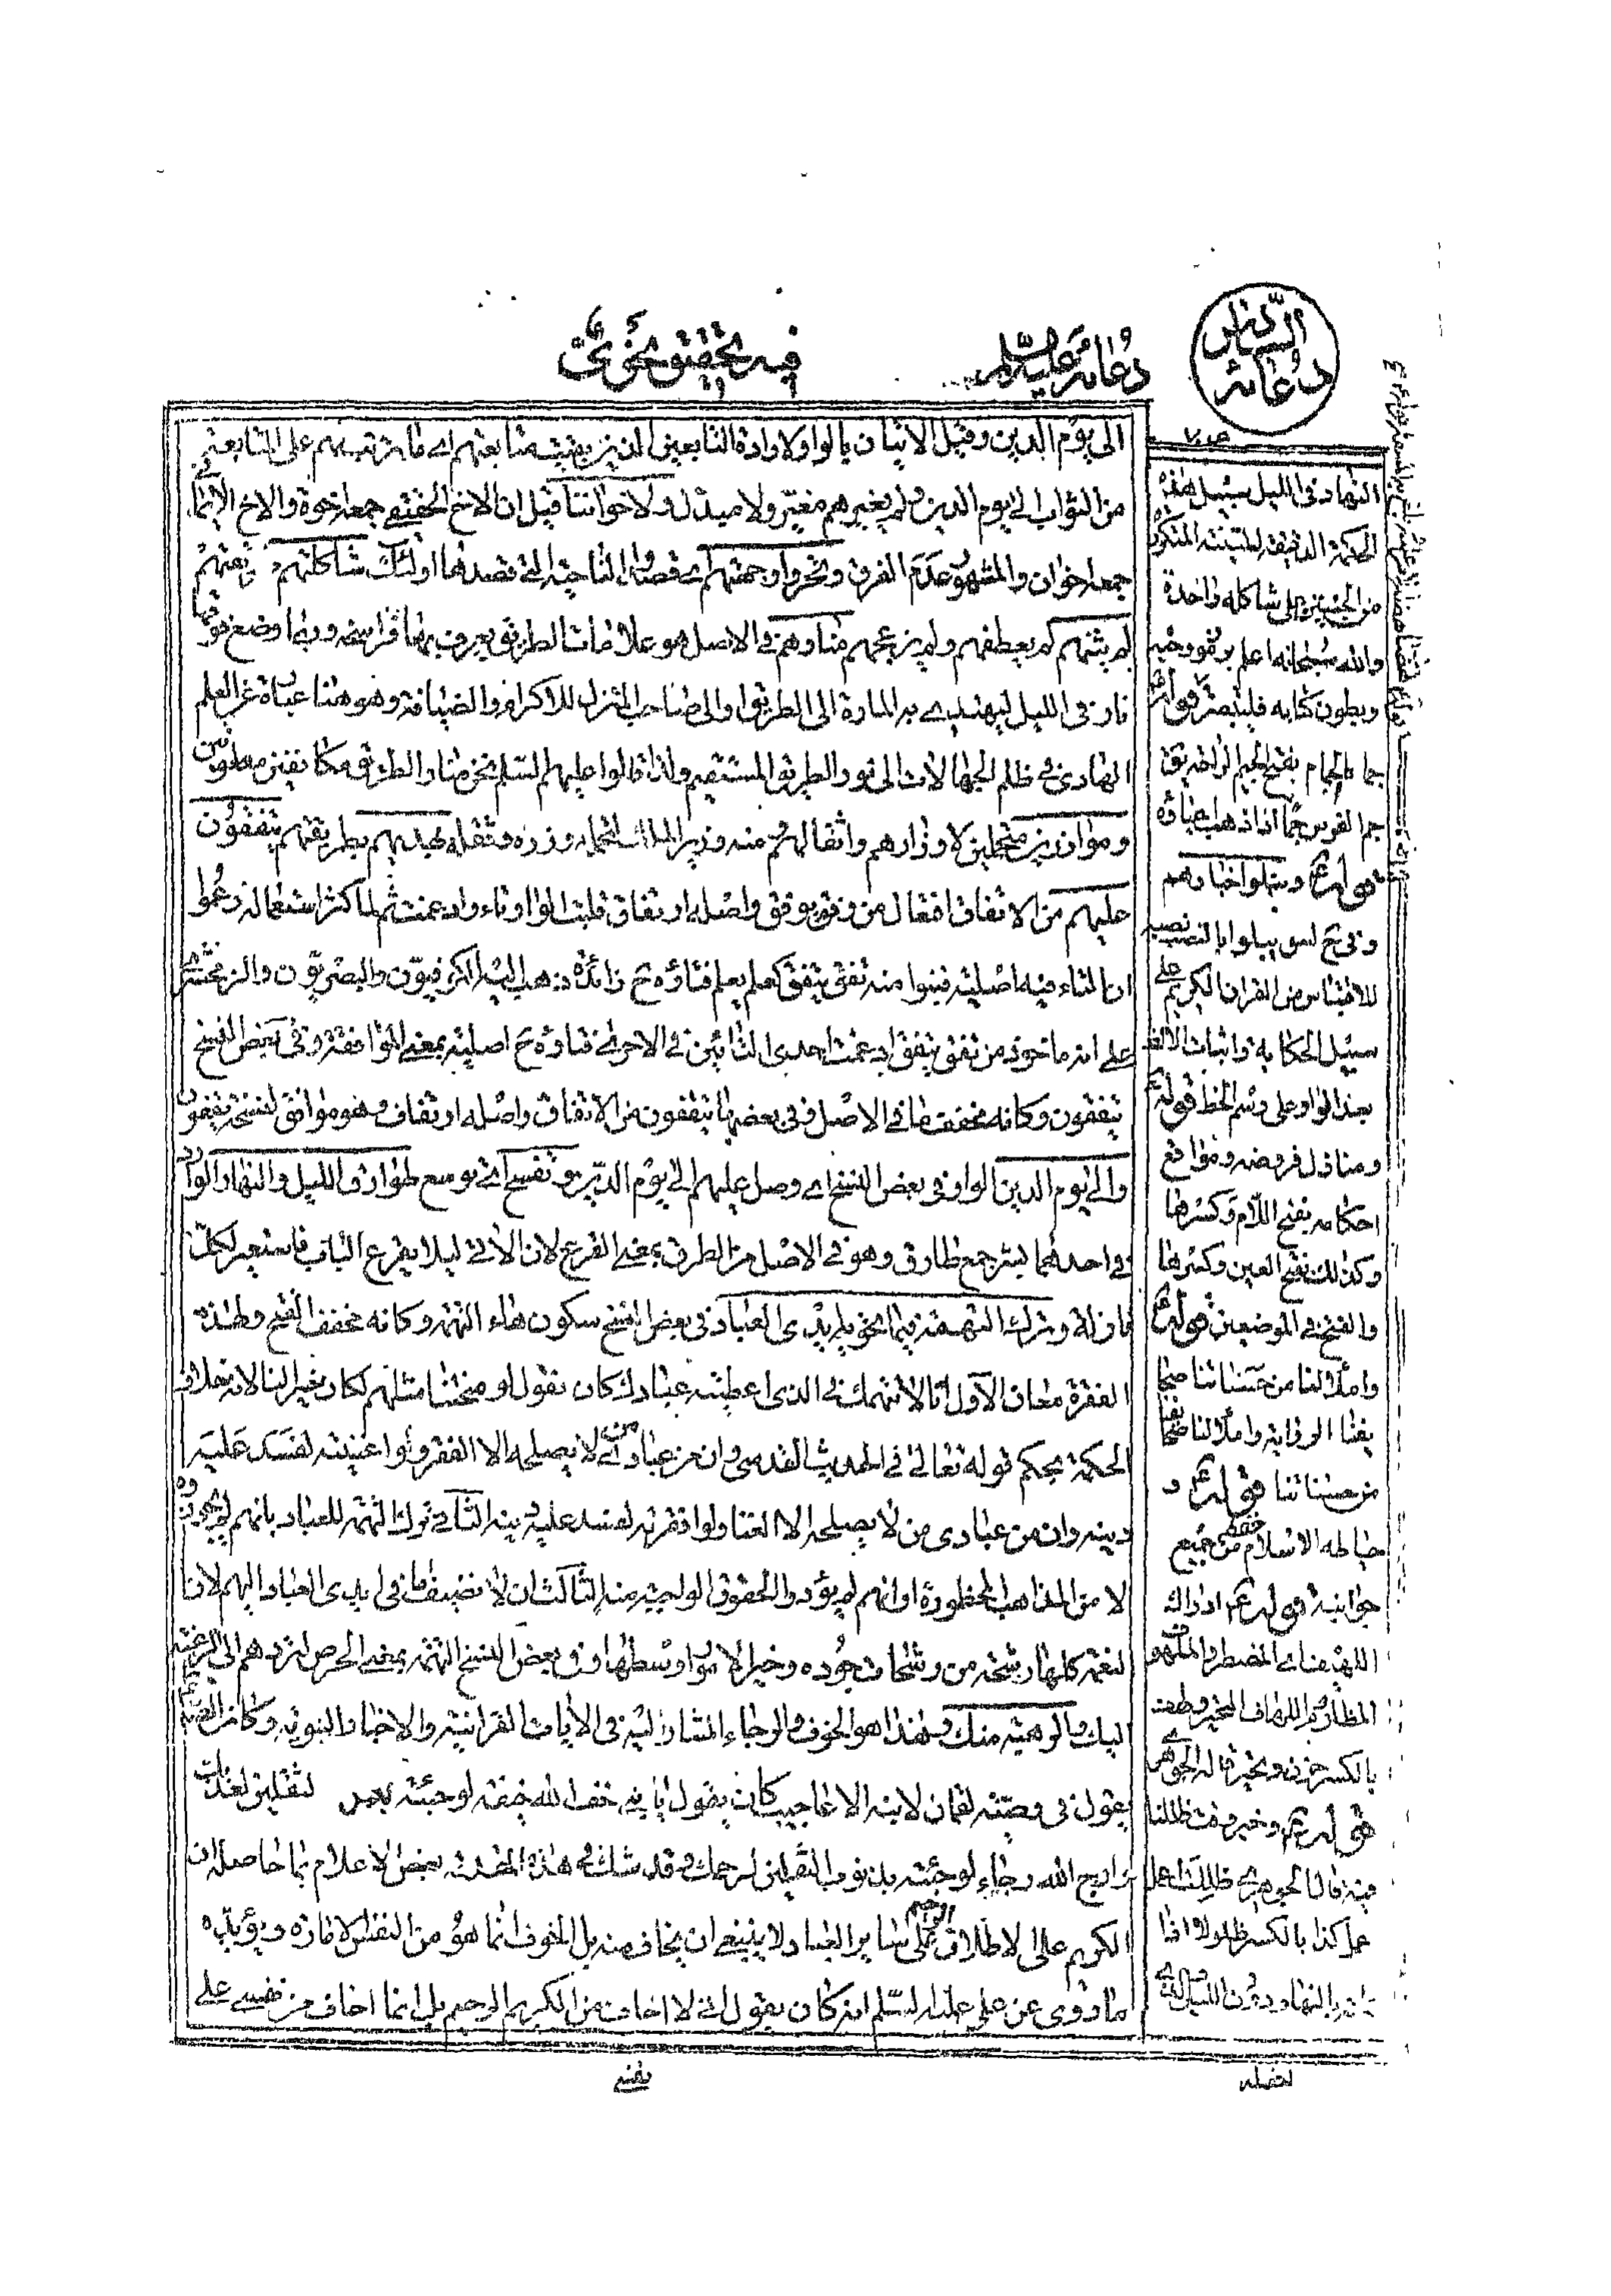 دعائه عليه السلام
فيه تحقيق نحوي
الى يوم الدين وقيل الاتيان بالواو لارادة التابعين الذين بقيت متابعتهم اي ما يترتب لهم على التابعية
من الثواب الى يوم الدين ولم يغيرهم مغير ولا مبدل ولاخواننا قيل ان الاخ الحقيقي جمعه اخوة والاخ الايماني
جمعه اخوان والمشهور عدم الفرق وتحروا وجهتهم اي قصدوا الناحية التي قصدها اولئك شاكلتهم طريقتهم
لم يثنهم لم يعطفهم ولم يزعجهم منارهم في الاصل هو علامات الطريق يعرف بها فراسخه وربما وضع فوقها
نار في الليل ليهتدي به المارة الى الطريق والى صاحب المنزل للاكرام والضيافة وهو هنا عبارة عن العلم
الهادي في ظلم الجهالات الى نور الطريق المستقيم ولذا قالوا عليهم السلم نحن منار الطريق مكانفين معاونين
وموازرين متحملين لاوزارهم واثقالهم ومنه وزير الملك لتحمله وزره وثقله بهديهم بطريقتهم يتفقون
عليهم من الاتفاق افتعال من وفق يوفق واصله اوتفاق قلبت الواو تاء وادغمت ثم لما كثر استعماله زعموا
ان التاء فيه اصلية فبنوا منه تفق يتفق كعلم يعلم فتاؤه ح زائدة ذهب اليه الكوفيون والبصريون والزمخشري
على انه ماخوذ من تفق يتفق ادغمت احدى التائين في الاخرى فتاؤه ح اصلية بمعنى الموافقة وفي بعض النسخ
يتفقون وكانه مخفف ما في الاصل وفي بعضها يتقفون من الاتقاف واصله اوتقاف وهو موافق لنسخة يقفون
والى يوم الدين الواو في بعض النسخ اي وصل عليهم الى يوم الدين وتفسح اي توسع طوارق الليل والنهار الوارد
في احدهما بشر جمع طارق وهو في الاصل من الطرق بمعنى القرع لان الاتي ليلا يقرع الباب فاستعير لكل
نازلة وترك التهمة فيما تحويه ايدي العباد في بعض النسخ سكون هاء التهمة وكانه مخفف الفتح ولهذه
الفقرة معان الاول انا لا نتهمك في الذي اعطيته عبادك كان نقول لو منحتنا مثلهم لكان خيرا لنا لانه خلاف
الحكمة بحكم قوله تعالى في الحديث القدسي وان من عبادي من لا يصلحه الا الفقر ولو اغنيته لفسد عليه
دينه وان من عبادي من لا يصلحه الا الغنا ولو افقرته لفسد عليه دينه الثاني ترك التهمة للعباد بانهم
لا من المذاهب المحظورة او انهم لم يؤدوا الحقوق الواجبة منه الثالث ان لا نضيف ما في ايدي العباد اليهم لان
النعم كلها رشحة من رشحات جوده وخير الامور اوسطها وفي بعض النسخ النهمة بمعنى الحرص لتردهم الى الرغبة
اليك والرهبة منك وهذا هو الخوف والرجاء المشار اليه في الايات القرانية والاخبار النبوية وكان الصادق
يقول في وصية لقمان لابنه الاعاجيب كان يقول يا بني خف الله خيفة لو جئته ببر الثقلين لعذبك
وارج الله رجاء لو جئته بذنوب الثقلين لرحمك وقد شك في هذه المقدمة بعض الاعلام بما حاصله ان
الكريم على الاطلاق الرحيم على سائر العباد لا ينبغي ان يخاف منه بل الخوف انما هو من النفس الامارة ويؤيده
ما روي عن علي عليه السلم انه كان يقول اني لا اخاف من الكريم الرحيم بل انما اخاف من نفسي على
نفسي
السادس
دعائه
النهار في الليل سبيل هذه
الحكمة الدقيقة
من الجنسين على شاكلة واحدة
والله سبحانه اعلم برموز وحيه
وبطون كتابه فليتبصر قوله
جما بالجمام بفتح الجيم الراحة يق
جم الفرس جما اذا ذهب اعياؤه
قوله ويبلوا اخبارهم
وفي نسخ ليبلوا بالنصب
للاقتباس من القران الكريم على
سبيل الحكاية واثبات الالف
بعد الواو على رسم الخط قوله
ومنازل فروضه ومواقع
احكامه بفتح اللام وكسرها
وكذلك بفتح العين وكسرها
والفتح في الموضعين قوله
واملا لنا من حسناتنا صحا
يفنا الرواية واملا لنا صحايفنا
من حسناتنا قوله و
حياطة الاسلام حفظه من جميع
جوانبه قوله ادراك
اللهيف اي المضطر والملهوف
المظلوم اللهاف المتحير ولهف
بالكسر حزن وتحير قاله الجوهري
قوله وخير وقت ظللنا
فيه قال الجوهري ظللت اعمل
عمل كذا بالكسر ظلولا اذا
عملته بالنهار دون الليل
لفضله